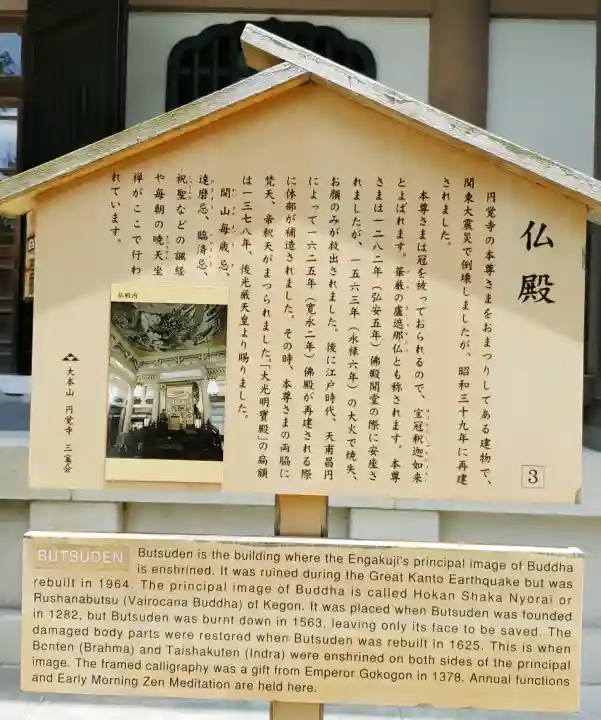 仏殿
円覚寺の本尊さまをおまつりしてある建物で、
関東大震災で倒壊しましたが、昭和三十九年に再建
されました。
本尊さまは冠を被っておられるので、宝冠釈迦如来
とよばれます。華厳の盧遮那仏とも称されます。本尊
さまは一二八二年（弘安五年）佛殿開堂の際に安座さ
れましたが、一五六三年（永禄六年）の大火で焼失、
お顔のみが救出されました。後に江戸時代、天甫昌円
によって一六二五年（寛永二年）佛殿が再建される際
に体部が補造されました。その時、本尊さまの両脇に
梵天、帝釈天がまつられました。「大光明寶殿」の扁額
は一三七八年、後光厳天皇より賜りました。
開山毎歳忌、
達磨忌、臨済忌、
祝聖などの諷経
や毎朝の暁天坐
禅がここで行わ
れています。
仏殿内
大本山 円覚寺 三宝会
3
BUTSUDEN Butsuden is the building where the Engakuji's principal image of Buddha
is enshrined. It was ruined during the Great Kanto Earthquake but was
rebuilt in 1964. The principal image of Buddha is called Hokan Shaka Nyorai or
Rushanabutsu (Vairocana Buddha) of Kegon. It was placed when Butsuden was founded
in 1282, but Butsuden was burnt down in 1563, leaving only its face to be saved. The
damaged body parts were restored when Butsuden was rebuilt in 1625. This is when
Bonten (Brahma) and Taishakuten (Indra) were enshrined on both sides of the principal
image. The framed calligraphy was a gift from Emperor Gokogon in 1378. Annual functions
and Early Morning Zen Meditation are held here.